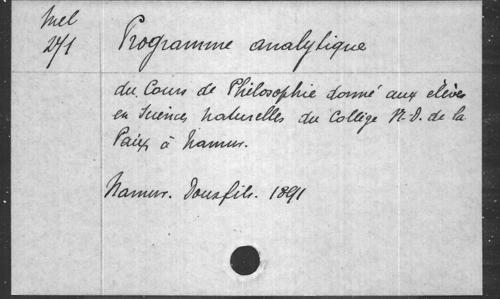 Mel
271
Programme analytique
du Cours de Philosophie donné aux élèves
en Sciences naturelles du Collège N.-D. de la
Paix, à Namur.
Namur. Douxfils. 1891